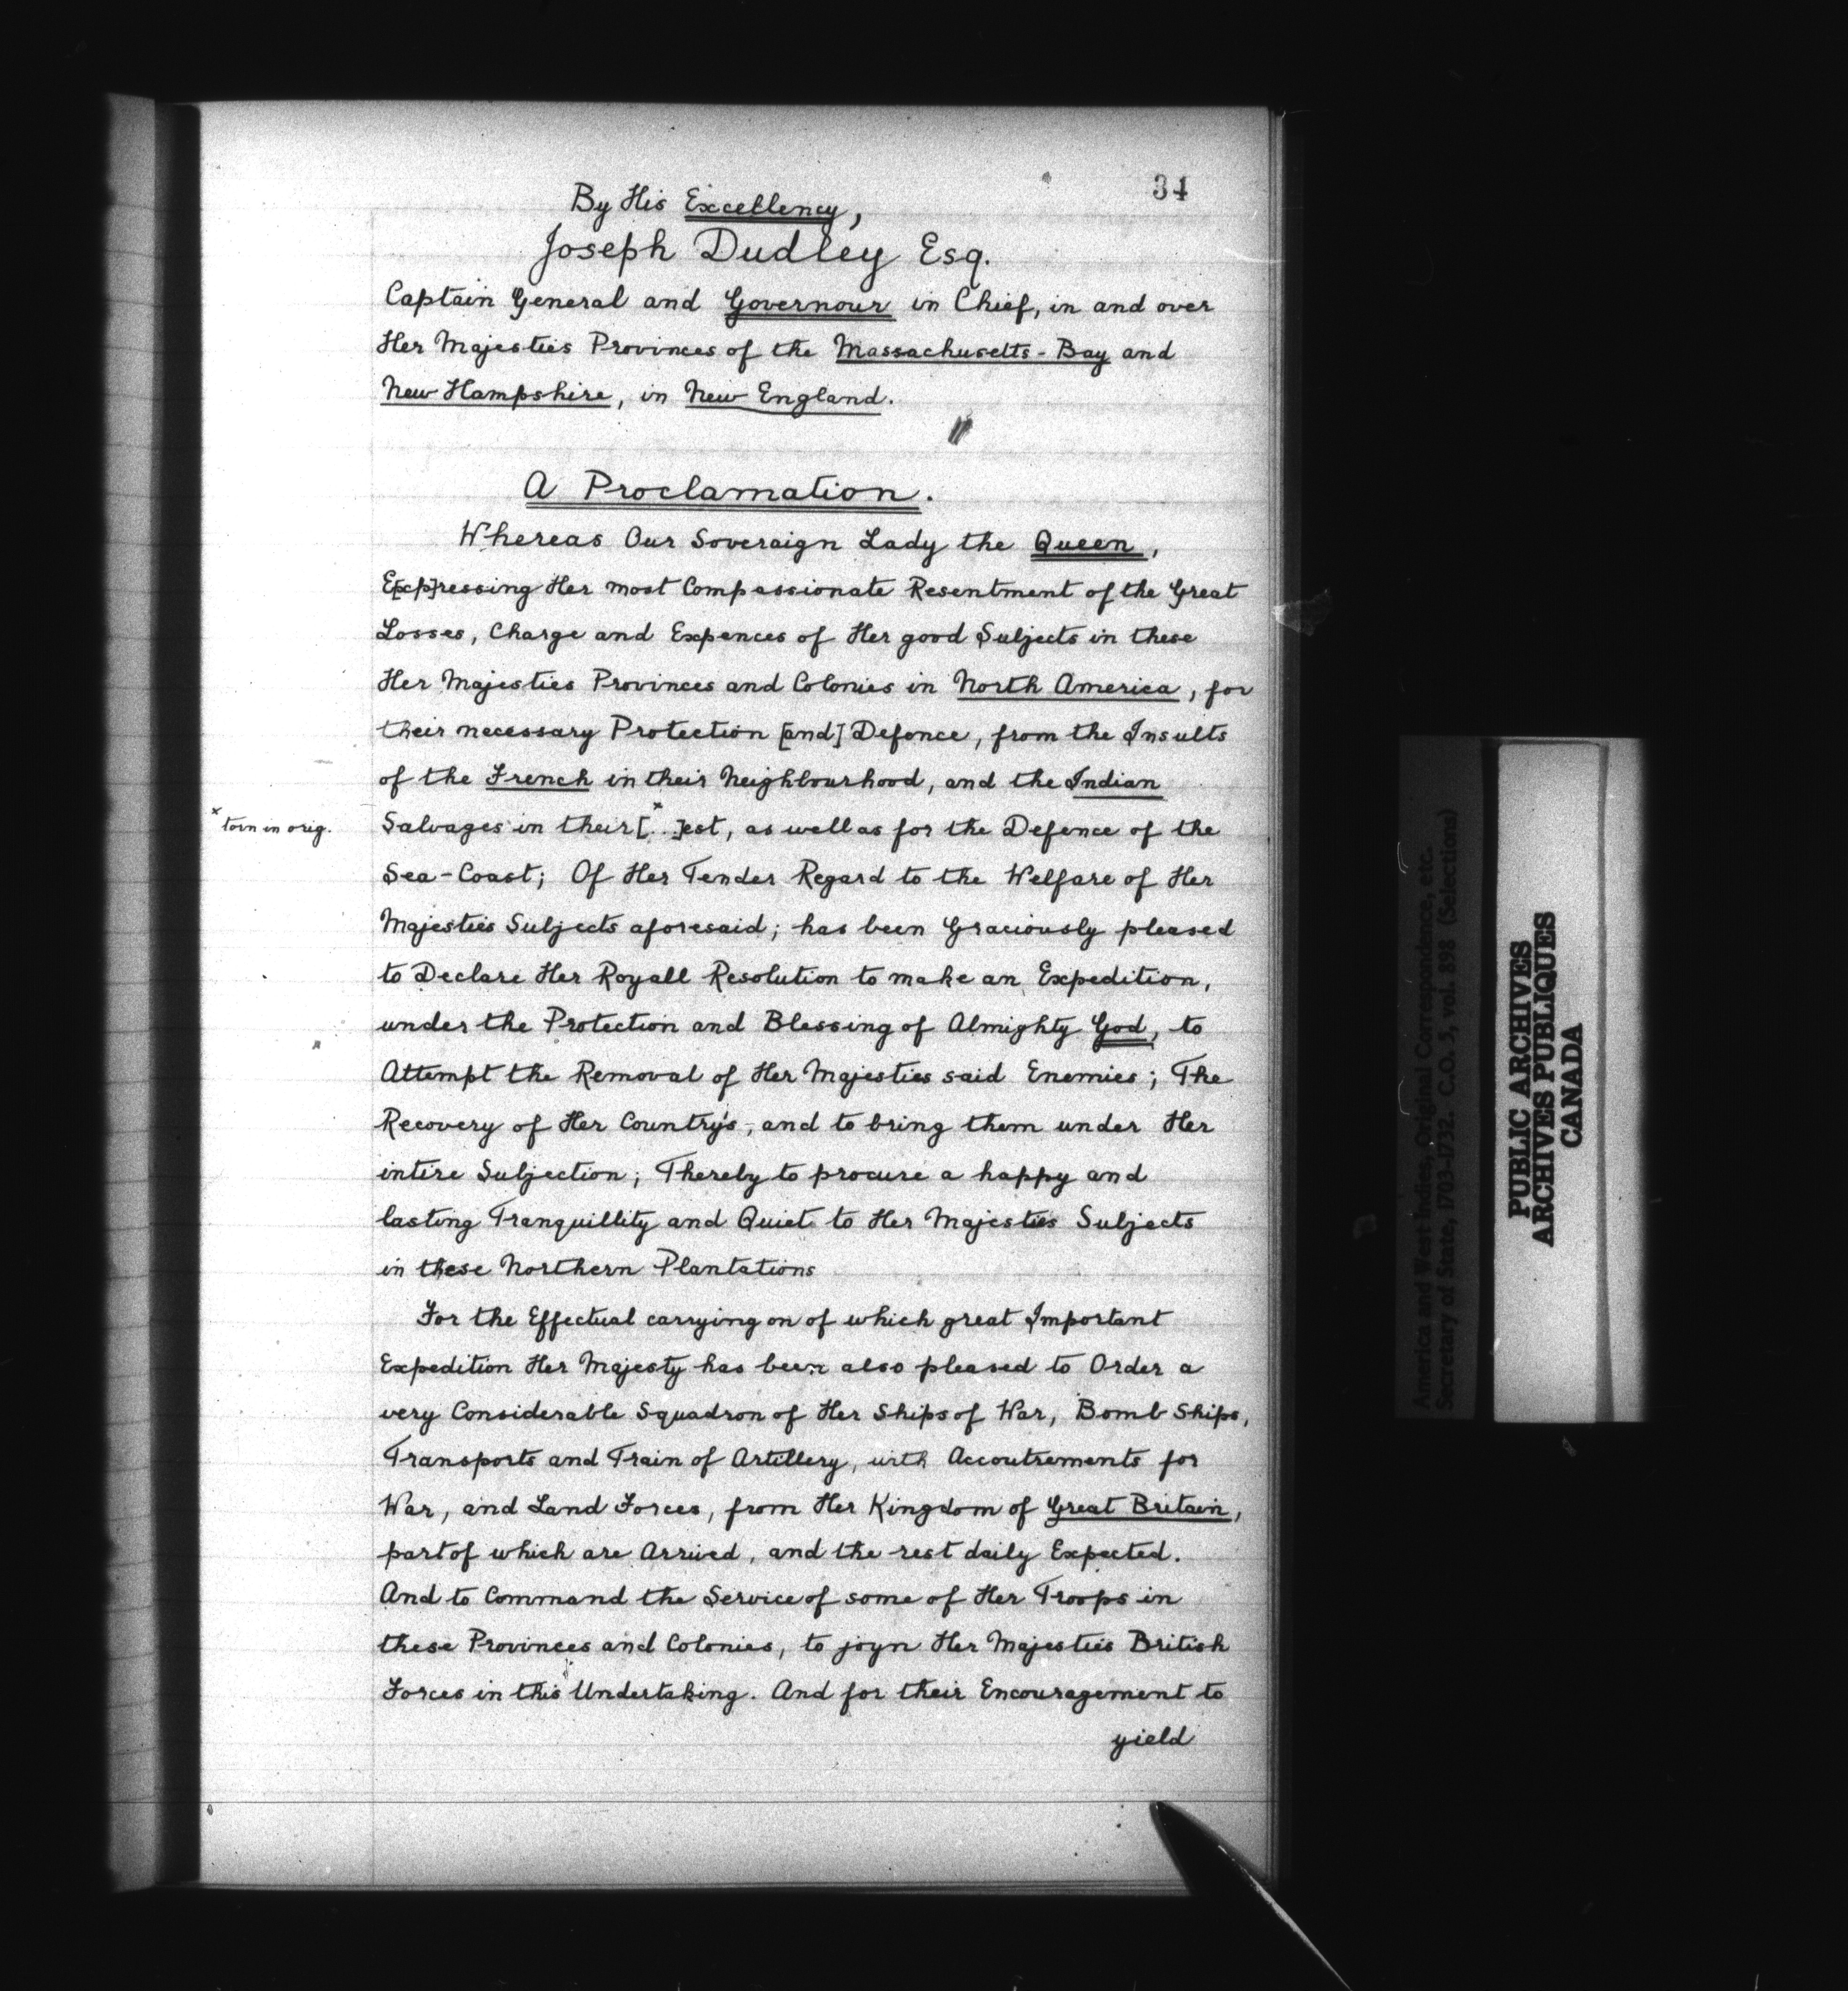 34
By His Excellency,
Joseph Dudley Esq.
Captain General and Governour in Chief, in and over
Her Majesties Provinces of the Massachusetts-Bay and
New Hampshire, in New England.
A Proclamation.
Whereas Our Soveraign Lady the Queen,
E[xp]ressing Her most Compassionate Resentment of the Great
Losses, Charge and Expences of Her good Subjects in these
Her Majesties Provinces and Colonies in North America, for
their necessary Protection [and] Defence, from the Insults
of the French in their Neighbourhood, and the Indian
x torn in orig.
Salvages in their [...]x est, as well as for the Defence of the
Sea-Coast; Of Her Tender Regard to the Welfare of Her
Majesties Subjects aforesaid; has been Graciously pleased
to Declare Her Royall Resolution to make an Expedition,
under the Protection and Blessing of Almighty God, to
Attempt the Removal of Her Majesties said Enemies; The
Recovery of Her Country's, and to bring them under Her
intire Subjection; Thereby to procure a happy and
lasting Tranquillity and Quiet to Her Majesties Subjects
in these Northern Plantations
For the Effectual carrying on of which great Important
Expedition Her Majesty has been also pleased to Order a
very Considerable Squadron of Her Ships of War, Bomb Ships,
Transports and Train of Artillery, with Accoutrements for
War, and Land Forces, from Her Kingdom of Great Britain,
part of which are Arrived, and the rest daily Expected.
And to Command the Service of some of Her Troops in
these Provinces and Colonies, to joyn Her Majesties British
Forces in this Undertaking. And for their Encouragement to
yield
America and West Indies, Original Correspondence, etc.
Secretary of State, 1703-1732. C.O. 5, vol. 898 (Selections)
PUBLIC ARCHIVES
ARCHIVES PUBLIQUES
CANADA